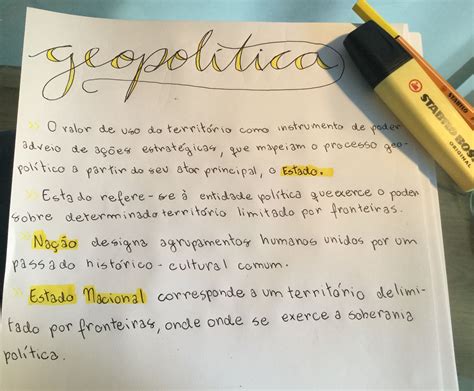 geopolítica
>> O valor de uso do território como instrumento de poder
adveio de ações estratégicas, que mapeiam o processo geo-
político a partir do seu ator principal, o Estado.
>> Estado refere-se à entidade política que exerce o poder
sobre determinado território limitado por fronteiras.
>> Nação designa agrupamentos humanos unidos por um
passado histórico-cultural comum.
>> Estado Nacional corresponde a um território delimi-
tado por fronteiras, onde onde se exerce a soberania
política.
STABILO BOSS
ORIGINAL
STABILO